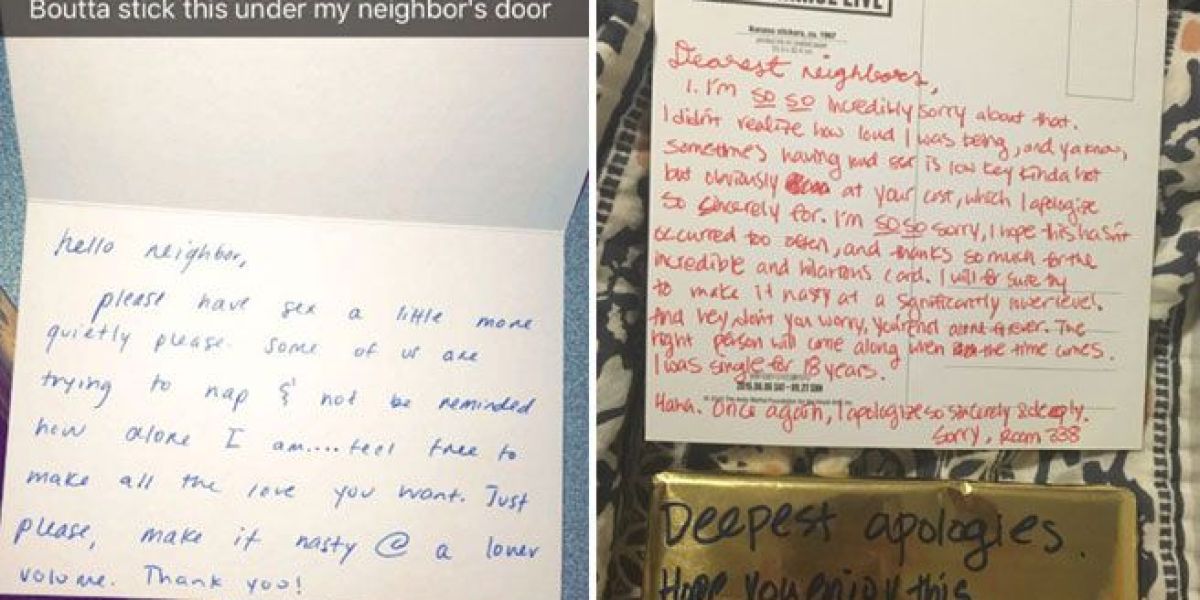 Boutta stick this under my neighbor's door
hello neighbor,
please have sex a little more
quietly please. Some of us are
trying to nap & not be reminded
how alone I am.... feel free to
make all the love you want. Just
please, make it nasty @ a lower
volume. Thank you!
LIVE
Banana stickers, ca. 1967
Dearest neighbors,
1. I'm so so incredibly sorry about that.
I didn't realize how loud I was being, and ya know,
sometimes having loud sex is low key kinda hot
but obviously at your cost, which I apologize
so sincerely for. I'm so so sorry, I hope this hasn't
occurred too often, and thanks so much for the
incredible and hilarious card. I will for sure try
to make it nasty at a significantly lower level.
And hey don't you worry, you're not alone forever. The
right person will come along when the time comes.
I was single for 18 years.
Haha. Once again, I apologize so sincerely & deeply.
Sorry, Room 338
Deepest apologies.
Hope you enjoy this